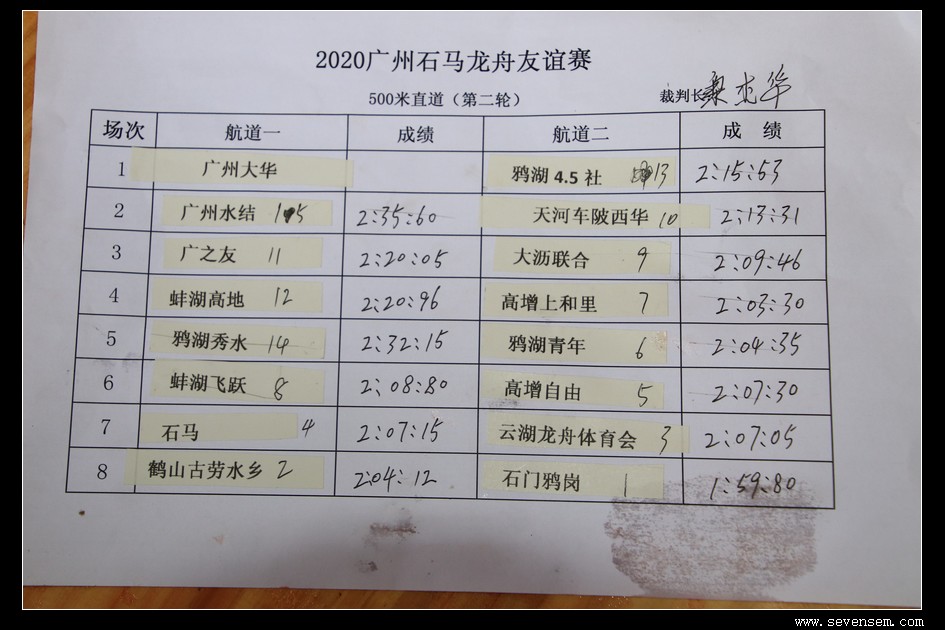 2020广州石马龙舟友谊赛
500米直道（第二轮） 裁判长
场次 航道一 成绩 航道二 成 绩
1 广州大华 鸦湖4.5社 13 2:15:53
2 广州水结 15 2:35:60 天河车陂西华 10 2:13:31
3 广之友 11 2:20:05 大沥联合 9 2:09:46
4 蚌湖高地 12 2:20:96 高增上和里 7 2:03:30
5 鸦湖秀水 14 2:32:15 鸦湖青年 6 2:04:35
6 蚌湖飞跃 8 2:08:80 高增自由 5 2:07:30
7 石马 4 2:07:15 云湖龙舟体育会 3 2:07:05
8 鹤山古劳水乡 2 2:04:12 石门鸦岗 1 1:59:80
www.sevensem.com